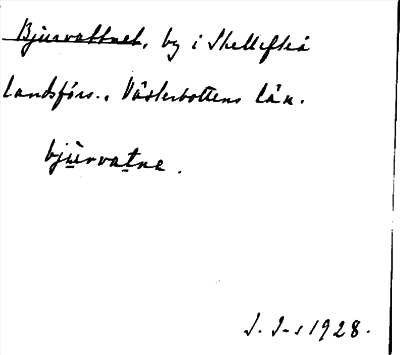 Bjurvattnet, by i Skellefteå
landsförs., Västerbottens län.
bjùrvatne.
J. J-s 1928.